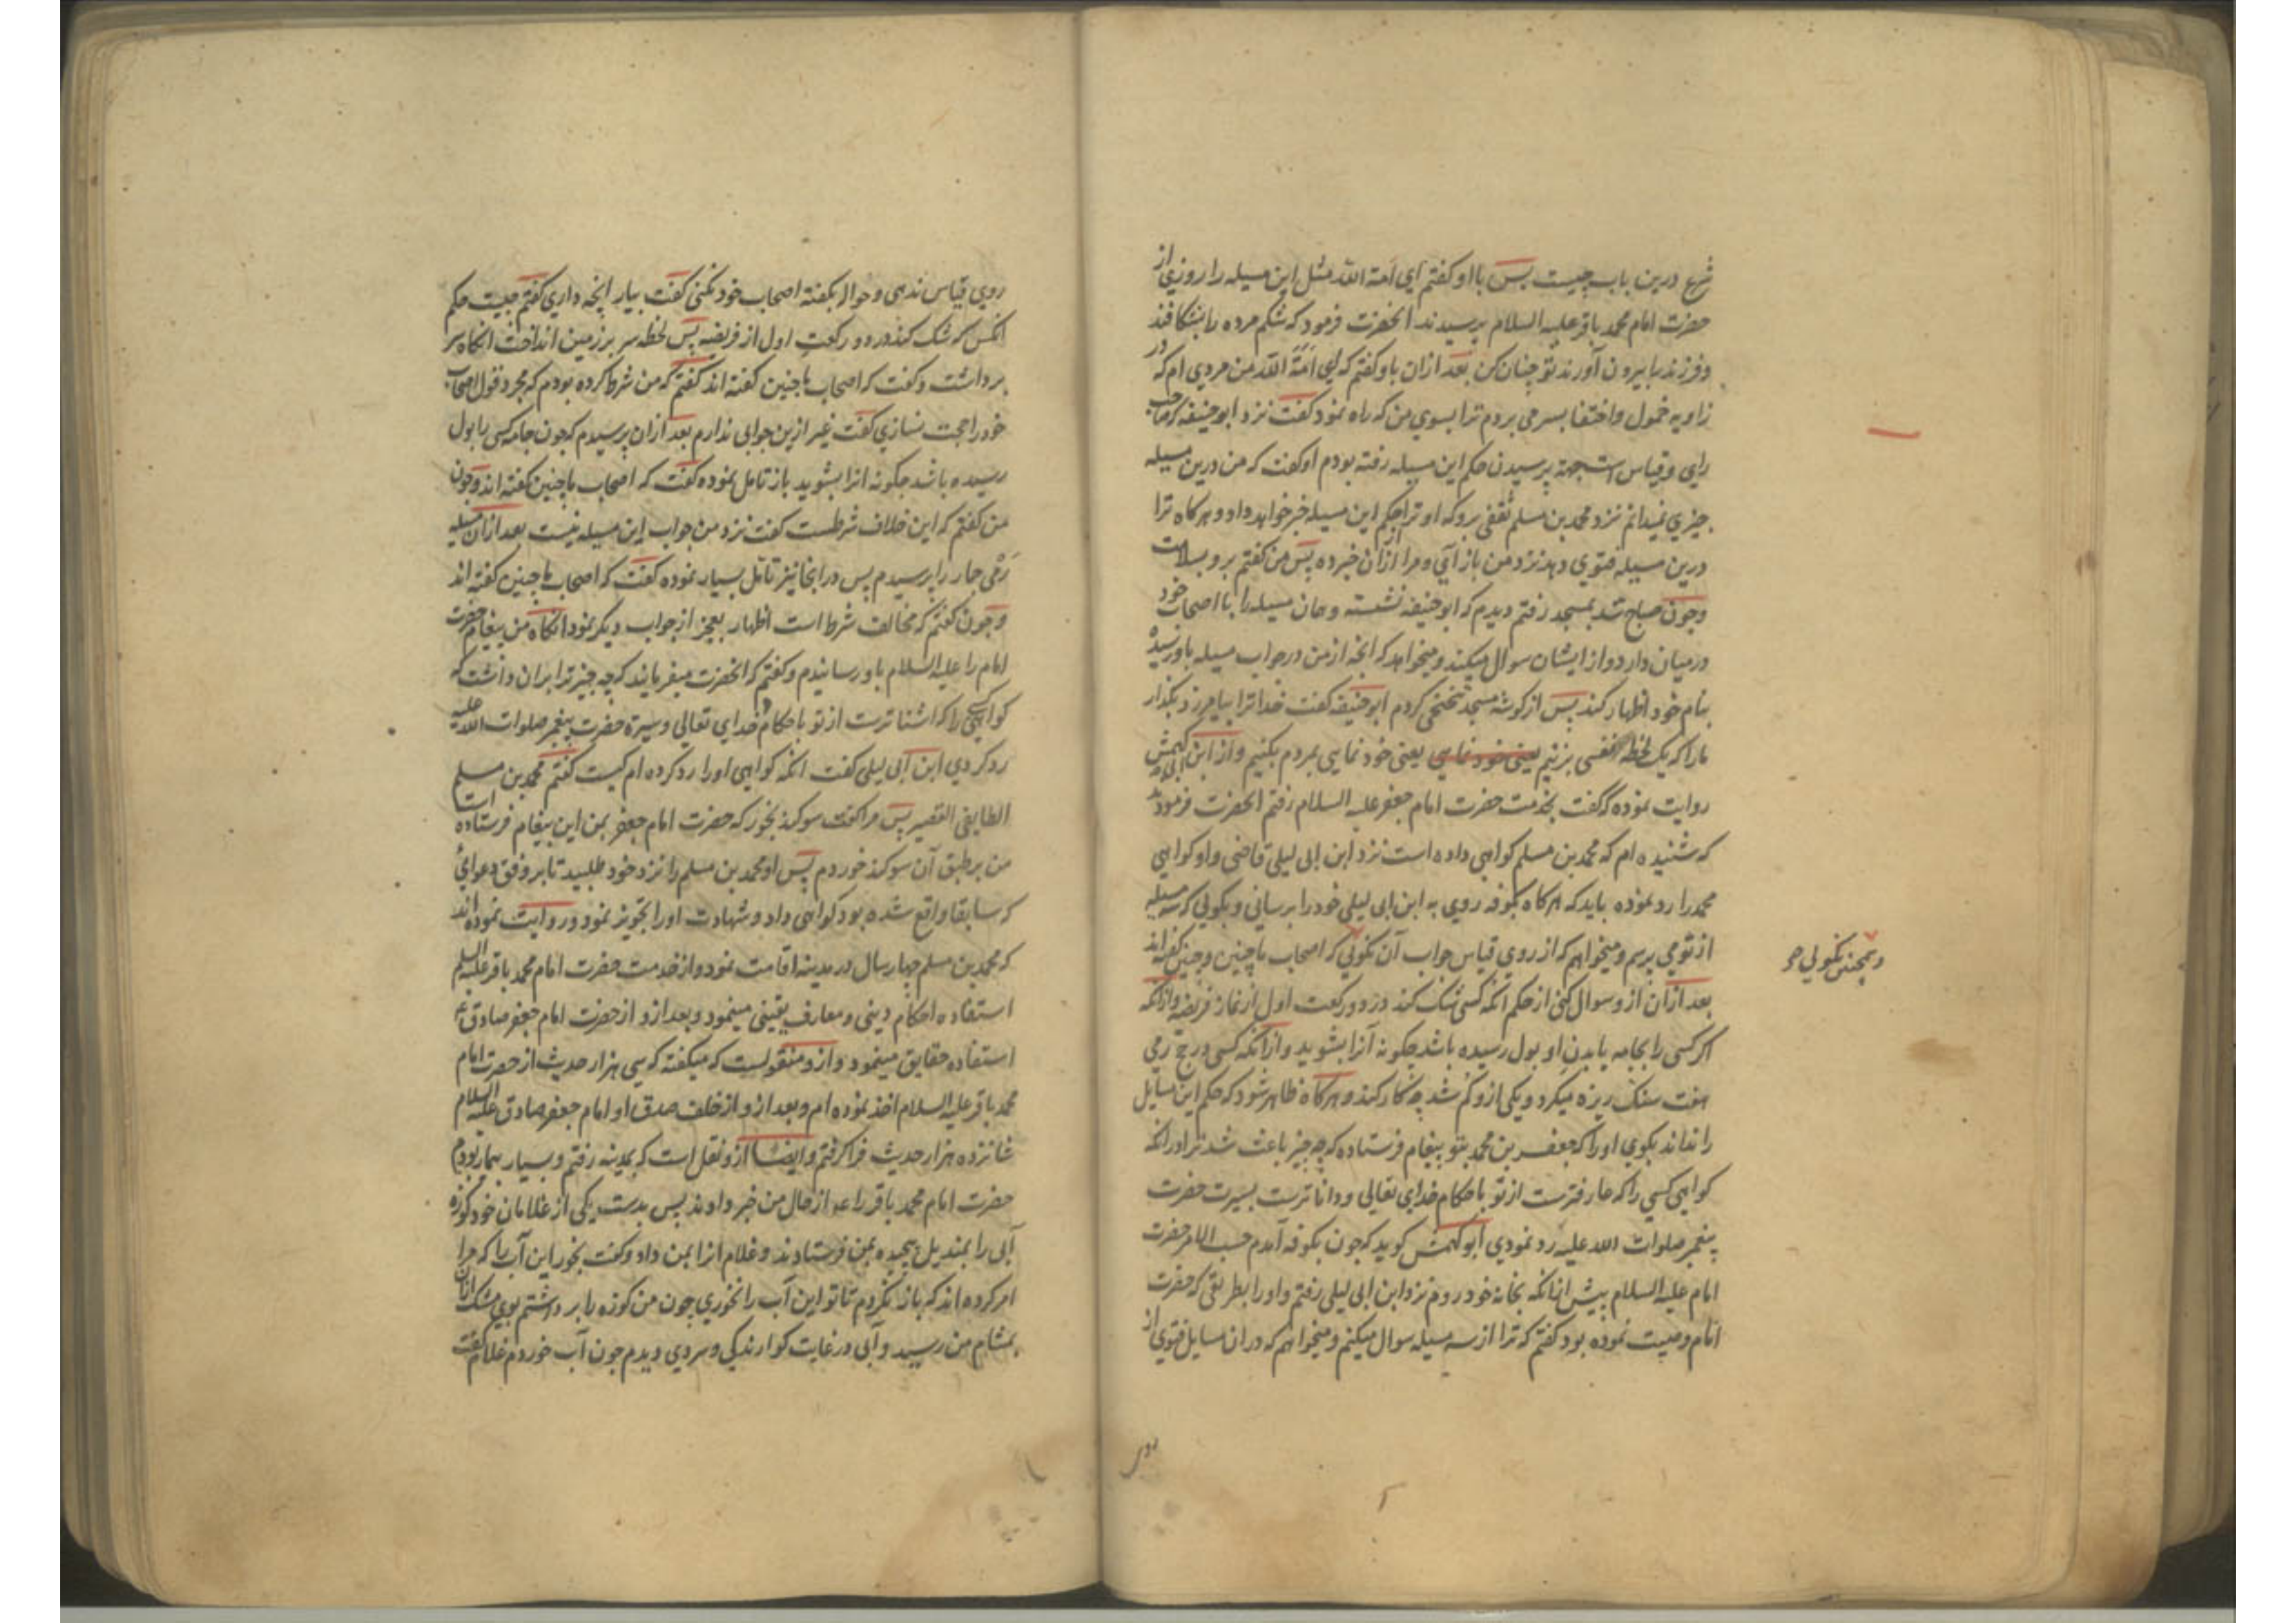 شرع درین باب چیست پس با او کفتم ای امة الله مثل این مسیله را روزی از
حضرت امام محمد باقر علیه السلام پرسیدند انحضرت فرمود که شکم مرده را بشکافند
و فرزند را بیرون آورند تو چنان کن بعد ازان باو کفتم که ای امة الله من مردی ام که در
زاویه خمول و اختفا بسر می بردم ترا بسوی من که راه نمود کفت نزد ابو حنیفه که صاحب
رای و قیاس است جهة پرسیدن حکم این مسیله رفته بودم او کفت که من درین مسیله
چیزی نمیدانم نزد محمد بن مسلم ثقفی برو که او ترا بحکم این مسیله خبر خواهد داد و هرکاه ترا
درین مسیله فتوی دهد نزد من باز آی و مرا ازان خبر ده پس من کفتم برو بسلامت
و چون صباح شد بمسجد رفتم دیدم که ابو حنیفه نشسته و همان مسیله را با اصحاب خود
درمیان دارد و از ایشان سوال میکند و میخواهد که انچه از من در جواب مسیله باو رسیده
بنام خود اظهار کند پس از کوشه مسجد تنحنحی کردم ابو حنیفه کفت خدا ترا بیامرزد بکذار
مارا که یک لحظه نفسی بزنیم یعنی خود نمایی یعنی خود نمایی بمردم بکنیم و از ابی کهمش
روایت نموده که کفت بخدمت حضرت امام جعفر علیه السلام رفتم انحضرت فرمودند
که شنیده ام که محمد بن مسلم کواهی داده است نزد ابن ابی لیلی قاضی و او کواهی
محمد را رد نموده باید که هرکاه بکوفه روی به ابن ابی لیلی خود را برسانی و بکولی که سه مسیله
از تو می پرسم و میخواهم که از روی قیاس جواب آن نکولی که اصحاب ما چنین و چنین کفته اند
و همچنین نکولی که
بعد ازان ازو سوال کنی از حکم انکه کسی شک کند در دو رکعت اول از نماز فریضه و ازانکه
اکر کسی را بجامه یا بدن او بول رسیده باشد چکونه آنرا بشوید و ازانکه کسی در حج رمی
هفت سنک ریزه میکرد و یکی ازو کم شد چه کار کند و هرکاه ظاهر شود که حکم این مسایل
را نداند بکوی او را که جعفر بن محمد بتو پیغام فرستاده که چه چیز باعث شد ترا در انکه
کواهی کسی را که عارفترست از تو باحکام خدای تعالی و داناترست بسیرت حضرت
پیغمبر صلوات الله علیه رد نمودی ابو کهمش کوید که چون بکوفه آمدم حسب الامر حضرت
امام علیه السلام پیش ازانکه بخانه خود روم نزد ابن ابی لیلی رفتم و او را بطریقی که حضرت
امام وصیت نموده بود کفتم که ترا از سه مسیله سوال میکنم و میخواهم که دران مسایل فتوی از
روی قیاس ندهی و حواله بکفته اصحاب خود نکنی کفت بیار انچه داری کفتم چیست حکم
انکس که شک کند در دو رکعت اول از فریضه پس لحظه سر بر زمین انداخت انکاه سر
برداشت و کفت که اصحاب ما چنین کفته اند کفتم که من شرط کرده بودم که مجرد قول اصحاب
خود را حجت نسازی کفت غیر ازین جوابی ندارم بعد ازان پرسیدم که چون جامه کسی را بول
رسیده باشد چکونه انرا بشوید باز تامل نموده کفت که اصحاب ما چنین کفته اند و چون
من کفتم که این خلاف شرطست کفت نزد من جواب این مسیله نیست بعد ازان مسیله
رمی جمار را پرسیدم پس در انجا نیز تامل بسیار نموده کفت که اصحاب ما چنین کفته اند
و چون کفتم که مخالف شرط است اظهار بعجز از جواب دیکر نمود انکاه من پیغام حضرت
امام را علیه السلام باو رسانیدم و کفتم که انحضرت میفرمایند که چه چیز ترا بران داشت که
کواهی را که اشناترست از تو باحکام خدای تعالی و سیرة حضرت پیغمبر صلوات الله علیه
رد کردی ابن ابی لیلی کفت انکه کواهی او را رد کرده ام کیست کفتم محمد بن مسلم
الطایفی القصیر پس مرا کفت سوکند بخور که حضرت امام جعفر بمن این پیغام فرستاده است
من بر طبق آن سوکند خوردم پس او محمد بن مسلم را نزد خود طلبید تا بر وفق دعوای
که سابقا واقع شده بود کواهی داد و شهادت او را تجویز نمود و روایت نموده اند
که محمد بن مسلم چهار سال در مدینه اقامت نمود و از خدمت حضرت امام محمد باقر علیه السلام
استفاده احکام دینی و معارف یقینی مینمود و بعد ازو از حضرت امام جعفر صادق ع
استفاده حقایق مینمود و ازو منقولست که میکفته که سی هزار حدیث از حضرت امام
محمد باقر علیه السلام اخذ نموده ام و بعد ازو از خلف صدق او امام جعفر صادق علیه السلام
شانزده هزار حدیث فرا کرفتم و ایضا ازو نقل است که بمدینه رفتم و بسیار بیمار بودم
حضرت امام محمد باقر را عم از حال من خبر دادند پس بدست یکی از غلامان خود کوزه
آبی را بمندیل پیچیده بمن فرستادند و غلام انرا بمن داد و کفت بخور این آب را که مرا
امر کرده اند که باز نکردم تا تو این آب را نخوری چون من کوزه را برداشتم بوی مشک ازان
بمشام من رسید و آبی در غایت کوارندکی و سردی دیدم چون آب خوردم غلام کفت